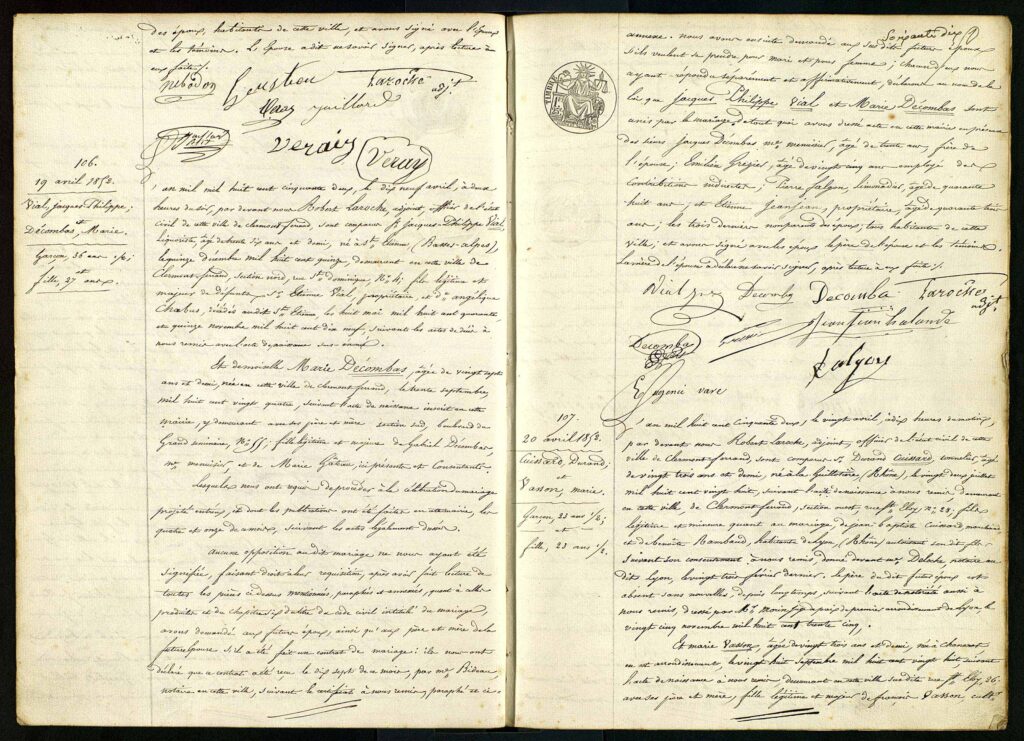 des époux, habitants de cette ville, et avons signé avec l'époux
et les témoins. L'épouse a dit ne savoir signer, après lecture à
eux faite.
Laroche
adjt
gaillard
Veraiy
Veray
106.
19 avril 1852.
Vial, Jacques Philippe;
et
Décombas, Marie.
Garçon, 36 ans 1/2;
et
fille, 27 ans.
L'an mil huit cent cinquante deux, le dix neuf avril, à deux
heures du soir, par devant nous Robert Laroche, adjoint, officier de l'état
civil de cette ville de Clermont ferrand, sont comparus Sr Jacques Philippe Vial,
liquoriste, âgé de trente six ans et demi, né à St Etienne (Basses-alpes)
le quinze Décembre mil huit cent quinze, demeurant en cette ville de
Clermont ferrand, section nord, rue St Dominique No 4; fils légitime et
majeur de défunts Sr Etienne Vial, propriétaire, et de angélique
Chabus, décédés audit St Etienne, les huit mai mil huit cent quarante,
et quinze novembre mil huit cent dix neuf, suivant les actes de décès à
nous remis avec l'acte de naissance susénoncé.
Et demoiselle Marie Décombas, âgée de vingt sept
ans et demi, née en cette ville de Clermont ferrand, le trente septembre
mil huit cent vingt quatre, suivant l'acte de naissance inscrit en cette
mairie, y demeurant avec ses père et mère section sud, boulevard du
Grand séminaire, No 55; fille légitime et majeure de Gabriel Décombas,
md menuisier, et de Marie Gateau, ici présents et consentants.
Lesquels nous ont requis de procéder à la célébration du mariage
projeté entr'eux, et dont les publications ont été faites en cette mairie, les
quatre et onze de ce mois, suivant les actes légalement dressés.
aucune opposition au dit mariage ne nous ayant été
signifiée, faisant droit à leur réquisition, après avoir fait lecture de
toutes les pièces ci dessus mentionnées, paraphées et annexées, quant à celles
produites et du chapitre six du titre du code civil intitulé du mariage,
avons demandé aux futurs époux, ainsi qu'aux père et mère de la
future épouse s'il a été fait un contrat de mariage: ils nous ont
déclaré que ce contrat a été reçu le dix sept de ce mois, par me Bideau
notaire en cette ville, suivant le certificat à nous remis, paraphé et ci
Soixante dix
annexé. nous avons ensuite demandé aux susdits futurs époux
s'ils veulent se prendre pour mari et pour femme; chacun d'eux nous
ayant répondu séparément et affirmativement, déclarons au nom de la
loi que Jacques Philippe Vial et Marie Décombas sont
unis par le mariage, de tout quoi avons dressé acte en cette mairie en présence
des sieurs Jacques Décombas md menuisier, âgé de trente ans, frère de
l'épouse; Emilien Grézier, âgé de vingt cinq ans employé des
Contributions indirectes; Pierre Jalgon, limonadier, âgé de quarante
huit ans, et Etienne Jeanjean, propriétaire, âgé de quarante trois
ans; les trois derniers non parents des époux; tous habitants de cette
ville; et avons signé avec les époux, le père de l'épouse et les témoins.
La mère de l'épouse a déclaré ne savoir signer, après lecture à eux faite.
TIMBRE
Vial
Décomba
Laroche
adjt
Décomba
Jean Jean
Jalgon
Eugénie vare
107.
20 avril 1852.
Cuissard, Durand;
et
Vasson, marie.
Garçon, 23 ans 1/2;
et
fille, 23 ans 1/2.
L'an mil huit cent cinquante deux, le vingt avril, à dix heures du matin,
par devant nous Robert Laroche, adjoint, officier de l'état civil de cette
ville de Clermont-ferrand, sont comparus Sr Durand Cuissard, tonnelier, âgé
de vingt trois ans et demi, né à la Guillotière, (Rhône), le vingt deux juillet
mil huit cent vingt huit, suivant l'acte de naissance à nous remis, demeurant
en cette ville de Clermont ferrand, section ouest, rue St Eloy no 28; fils
légitime et mineur quant au mariage, de jean baptiste Cuissard,
et de benoîte Rambaud, habitante de Lyon, (Rhône) autorisant son dit fils
suivant son consentement à nous remis, donné devant me Deloche notaire au
dit Lyon, le vingt trois février dernier. le père du dit futur époux est
absent sans nouvelles, depuis longtemps, suivant l'acte de notoriété aussi à
nous remis, dressé par Mr juge de paix du premier arrondissement de Lyon, le
vingt cinq novembre mil huit cent trente cinq.
Et marie Vasson, âgée de vingt trois ans et demi, née à Chanonat
en cet arrondissement, le vingt huit septembre mil huit cent vingt huit suivant
l'acte de naissance à nous remis demeurant en cette ville susdite rue St Eloy, 26,
avec ses père et mère, fille légitime et majeure de françois Vasson, cultr